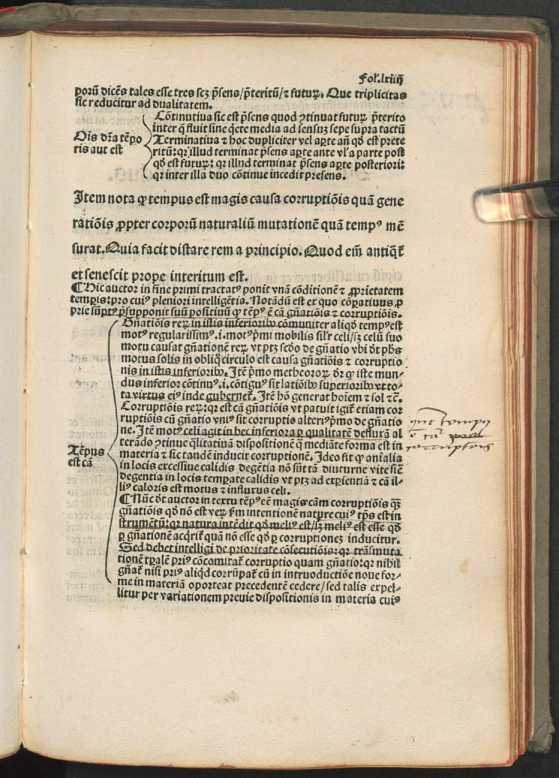 Fol. lxiiij
porū dicēs tales esse tres scȝ p̄sens/p̄teritū/⁊ futurꝝ. Que triplicitas
sic reducitur ad dualitatem.
Cōtinutiua sic est p̄sens quod ꝯtinuat futurꝝ p̄terito
inter ꝙ fluit sine media ad sensuȝ sepe supra tactū
Ois dr̄na tēpo
ris aut est
Terminatiua ⁊ hoc dupliciter vel aꝑte añ qd̄ est prete
ritū: qꝛ illud terminat p̄sens aꝑte ante vl̓ a parte post
qd̄ est futurꝝ: qꝛ illud terminat p̄sens aꝑte posteriori:
qꝛ inter illa duo cōtinue incedit presens.
Item nota ꝙ tempus est magis causa corruptiōis quā gene
ratiōis ꝓpter corporū naturaliū mutationē quā tempꝰ mē
surat. Quia facit distare rem a principio. Quod em̄ antiq̄t̄
et senescit prope interitum est.
¶ Hic auctor in fine primi tractatꝰ ponit vnā cōditionē ⁊ ꝓprietatem
temꝑis: pro cuiꝰ pleniori intelligētia. Notādū est ex quo cōꝑatiuus ꝓ
prie sūptꝰ p̄supponit suū positiuū ꝙ tēpꝰ ē cā gn̄atiōis ⁊ corruptiōis.
Gn̄atiōis reꝝ in istis inferioribꝰ cōmuniter aliqd̄ tempꝰ est
motꝰ regularissimꝰ .i. motꝰ p̄mi mobilis sil̓r celi/iȝ celū suo
motu causat gn̄ationē reꝝ vt ptȝ scd̄o de gn̄atio vbi dt̄ ph̄s
motus solis in obliq̄ circulo est causa gn̄atiōis ⁊ corruptio
nis in istis inferioribꝰ. Itē p̄mo metheoroꝝ. dr̄ ꝙ iste mun
dus inferior cōtinuꝰ .i. cōtiguꝰ sit latiōibꝰ superioribꝰ vt to
ta virtus eiꝰ inde gubernet̄. Itē hō generat hoiem ⁊ sol ⁊c̄.
Corruptiōis reꝝ: qꝛ est cā gn̄atiōis vt patuit igit̄ etiam cor
ruptiōis cū gn̄atio vniꝰ sit corruptis alteriꝰ p̄mo de gn̄atio
ne. Itē motꝰ celi agit in hec inferiora ꝑ qualitatē
terādo ꝯtinue q̄litatiuā dispositionē q̄ mediāte forma est in
Tēpus
est cā
materia ⁊ sic tandē inducit corruptionē. Ideo fit ꝙ aīalia
in locis excessiue calidis degētia nō sūt tā diuturne vite sic̄
degentia in locis temperate calidis vt ptȝ ad experientiā ⁊ cā il
liꝰ caloris est motus ⁊ influxus celi.
¶ Nūc dt̄ auctor in textu tēpꝰ eē magis cām corruptiōis q̄ȝ
gn̄atiōis qd̄ nō est verꝝ ẜm intentionē nature cuiꝰ tp̄s est in
strumētū: qꝛ natura intēdit qd̄ meliꝰ est/iȝ meliꝰ est esse qd̄
ꝑ gn̄ationē acqrit̄ quā nō esse qd̄ ꝑ corruptionez inducitur.
Sed debet intelligi de prioritate cōsecutiōis: qꝛ trāsmuta
tionē tꝑalē priꝰ cōcomitat̄ corruptio quam gn̄atio: qꝛ nihil
gn̄at̄ nisi priꝰ aliqd̄ corrūpat̄ cū in introductiōe noue for
me in materiā oporteat precedentē cedere/sed talis expel
litur per variationem preuie dispositionis in materia cuiꝰ